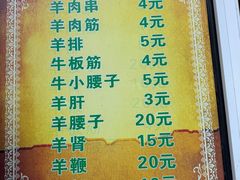 羊肉串 4元
羊肉筋 4元
羊排 5元
牛板筋 4元
牛小腰子 5元
羊肝 3元
羊腰子 20元
羊肾 15元
羊鞭 20元